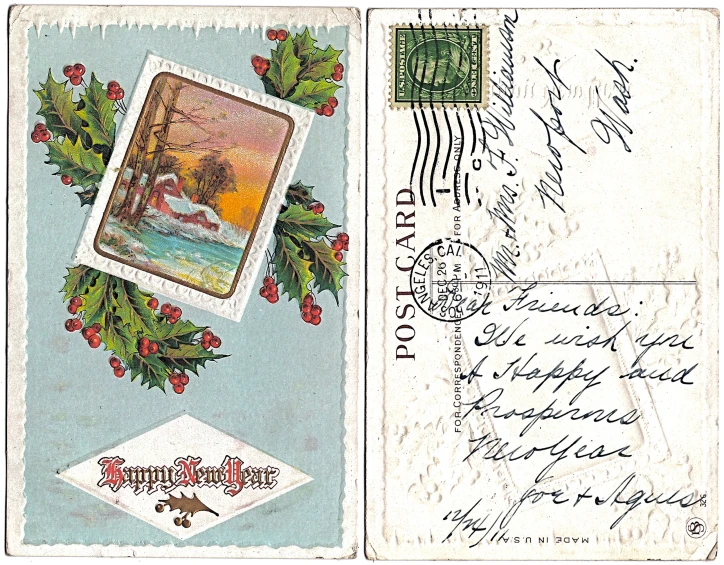 Happy New Year
U.S. POSTAGE
Mr. & Mrs. F. Williamson
Newport
Wash.
POST CARD
FOR ADDRESS ONLY
FOR CORRESPONDENCE
ANGELES, CAL.
DEC 26
6 30 PM
1911
Dear Friends:
We wish you
A Happy and
Prosperous
New Year
Joe & Agnes
12/24/11
MADE IN U.S.A.